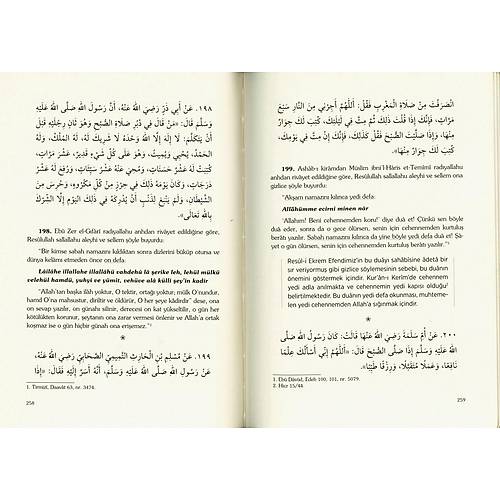 ١٩٨. عَنْ أَبِي ذَرٍّ رَضِيَ اللّٰهُ عَنْهُ، أَنَّ رَسُولَ اللّٰهِ صَلَّى اللّٰهُ عَلَيْهِ
وَسَلَّمَ قَالَ: «مَنْ قَالَ فِي دُبُرِ صَلَاةِ الصُّبْحِ وَهُوَ ثَانٍ رِجْلَيْهِ قَبْلَ
أَنْ يَتَكَلَّمَ: لَا إِلٰهَ إِلَّا اللّٰهُ وَحْدَهُ لَا شَرِيكَ لَهُ، لَهُ الْمُلْكُ، وَلَهُ
الْحَمْدُ، يُحْيِي وَيُمِيتُ، وَهُوَ عَلَى كُلِّ شَيْءٍ قَدِيرٌ، عَشْرَ مَرَّاتٍ،
كُتِبَ لَهُ عَشْرُ حَسَنَاتٍ، وَمُحِيَ عَنْهُ عَشْرُ سَيِّئَاتٍ، وَرُفِعَ لَهُ عَشْرُ
دَرَجَاتٍ، وَكَانَ يَوْمَهُ ذٰلِكَ فِي حِرْزٍ مِنْ كُلِّ مَكْرُوهٍ، وَحَرْسٍ مِنَ
الشَّيْطَانِ، وَلَمْ يَنْبَغِ لِذَنْبٍ أَنْ يُدْرِكَهُ فِي ذٰلِكَ الْيَوْمِ إِلَّا الشِّرْكَ
بِاللّٰهِ تَعَالَى».
198. Ebû Zer el-Gıfârî radıyallahu anhdan rivâyet edildiğine göre,
Resûlullah sallallahu aleyhi ve sellem şöyle buyurdu:
"Bir kimse sabah namazını kıldıktan sonra dizlerini büküp oturur ve
dünya kelâmı etmeden önce on defa:
Lâilâhe illallahe illallâhü vahdehû lâ şerîke leh, lehül mülkü
velehül hamdü, yuhyî ve yümît, vehüve alâ külli şey'in kadîr
"Allah'tan başka ilâh yoktur, O tektir, ortağı yoktur, mülk O'nundur,
hamd O'na mahsustur, diriltir ve öldürür, O her şeye kâdirdir" dese, ona
on sevap yazılır, on günahı silinir, derecesi on kat yükseltilir, o gün her
kötülükten korunur, şeytanın ona zarar vermesi önlenir ve Allah'a ortak
koşmaz ise o gün hiçbir günah ona erişemez."¹
*
١٩٩. عَنْ مُسْلِمِ بْنِ الْحَارِثِ التَّمِيمِيِّ الصَّحَابِيِّ رَضِيَ اللّٰهُ عَنْهُ،
عَنْ رَسُولِ اللّٰهِ صَلَّى اللّٰهُ عَلَيْهِ وَسَلَّمَ، أَنَّهُ أَسَرَّ إِلَيْهِ فَقَالَ: «إِذَا
1. Tirmizî, Daavât 63, nr. 3474.
258
انْصَرَفْتَ مِنْ صَلَاةِ الْمَغْرِبِ فَقُلْ: اَللّٰهُمَّ أَجِرْنِي مِنَ النَّارِ سَبْعَ
مَرَّاتٍ، فَإِنَّكَ إِذَا قُلْتَ ذٰلِكَ، ثُمَّ مِتَّ فِي لَيْلَتِكَ، كُتِبَ لَكَ جِوَارٌ
مِنْهَا، وَإِذَا صَلَّيْتَ الصُّبْحَ فَقُلْ كَذٰلِكَ، فَإِنَّكَ إِنْ مِتَّ فِي يَوْمِكَ،
كُتِبَ لَكَ جِوَارٌ مِنْهَا».
199. Ashâb-ı kirâmdan Müslim ibni'l-Hâris et-Temîmî radıyallahu
anhdan rivâyet edildiğine göre, Resûlullah sallallahu aleyhi ve sellem ona
gizlice şöyle buyurdu:
"Akşam namazını kılınca yedi defa:
Allâhümme ecirnî minen nâr
"Allahım! Beni cehennemden koru!" diye duâ et! Çünkü sen böyle
duâ eder, sonra da o gece ölürsen, senin için cehennemden kurtuluş
berâtı yazılır. Sabah namazını kılınca da yine böyle yedi defa duâ et! Şayet
o gün ölürsen, senin için cehennemden kurtuluş berâtı yazılır."¹
Resûl-i Ekrem Efendimiz'in bu duâyı sahâbîsine âdetâ bir
sır veriyormuş gibi gizlice söylemesinin sebebi, bu duânın
önemini göstermektedir. Kur'ân-ı Kerîm'de cehennemin
yedi adla anılmakta ve cehennemin yedi kapısı olduğu²
belirtilmektedir. Bu duânın yedi defa okunması, muhteme-
len yedi cehennemden korunması içindir.
*
٢٠٠. عَنْ أُمِّ سَلَمَةَ رَضِيَ اللّٰهُ عَنْهَا قَالَتْ: كَانَ رَسُولُ اللّٰهِ صَلَّى
اللّٰهُ عَلَيْهِ وَسَلَّمَ إِذَا صَلَّى الصُّبْحَ قَالَ: «اَللّٰهُمَّ إِنِّي أَسْأَلُكَ عِلْمًا
نَافِعًا، وَعَمَلًا مُتَقَبَّلًا، وَرِزْقًا طَيِّبًا».
1. Ebû Dâvûd, Edeb 100, 101, nr. 5079.
2. Hicr 15/44
259